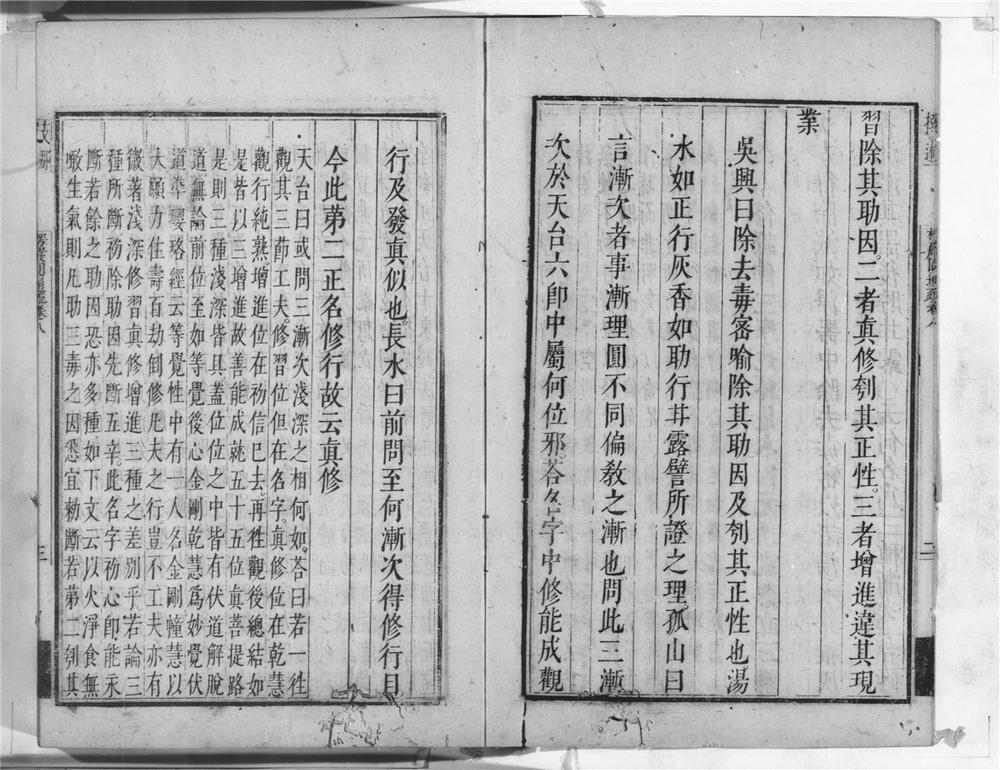 習除其助因。二者眞修刳其正性。三者增進違其現
業
吳興曰除去毒蜜喻除其助因及刳其正性也湯
水如正行灰香如助行甘露譬所證之理。孤山曰
言漸次者事漸理圓不同偏敎之漸也。問此三漸
次於天台六卽中屬何位邪。荅名字中修能成觀
行及發眞似也長水曰前問至何漸次得修行目
今此第二正名修行故云眞修
天台曰或問三漸次淺深之相何如。荅曰若一徃
觀其三莭工夫。修習位但在名字。眞修位在乾慧
觀行純熟增進位在初信已去。再徃觀後總結如
是皆以三增進故善能成就五十五位眞菩提路
是則三種淺深皆具蓋位位之中皆有伏道解脫
道無論前位至如等覺後心金剛乾慧爲妙覺伏
道準瓔珞經云等覺性中有一人名金剛幢慧以
大願力住壽百劫倒修凡夫之行豈不工夫亦有
微著淺深修習眞修增進三種之差别乎。若論三
種所斷初除助因先斷五辛。此名字初心卽能永
斷若餘之助因恐亦多種如下文云以火淨食無
噉生氣則凡助三毒之因悉宜勅斷若第二刳其
楞嚴圓通疏卷八
三
楞嚴圓通疏卷八
二